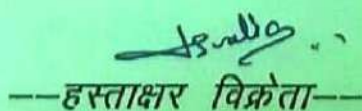 --हस्ताक्षर विक्रेता--